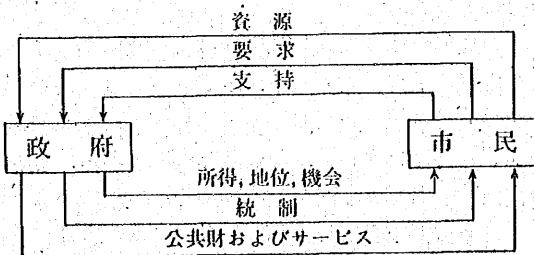 資源
要求
支持
政府
市民
所得,地位,機会
統制
公共財およびサービス